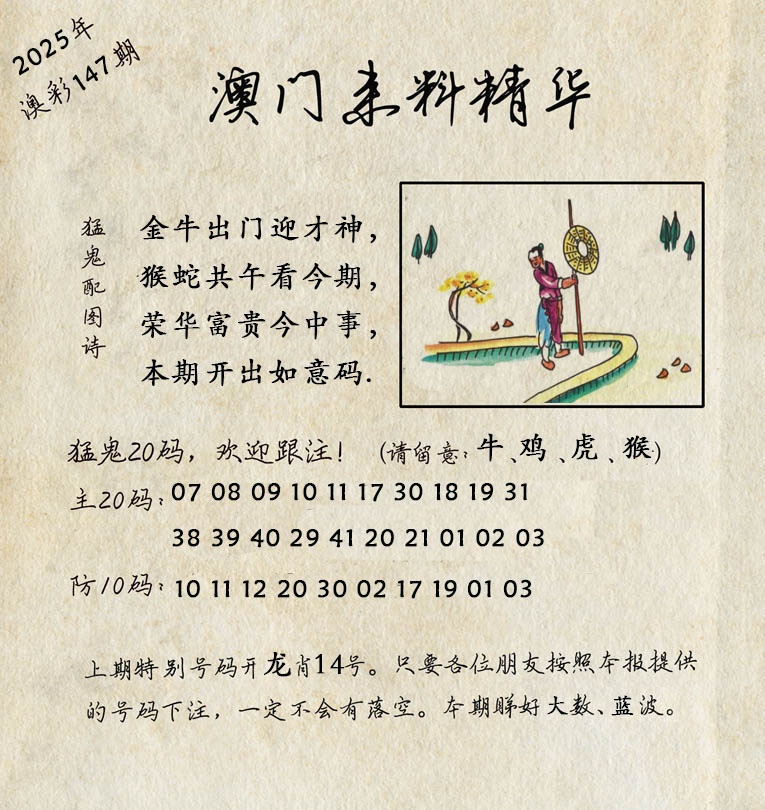 2025年
澳彩147期
澳门来料精华
猛鬼配图诗
金牛出门迎才神，
猴蛇共午看今期，
荣华富贵今中事，
本期开出如意码.
猛鬼20码，欢迎跟注！（请留意：牛、鸡、虎、猴）
主20码：07 08 09 10 11 17 30 18 19 31
38 39 40 29 41 20 21 01 02 03
防10码：10 11 12 20 30 02 17 19 01 03
上期特别号码开龙肖14号。只要各位朋友按照本报提供
的号码下注，一定不会有落空。本期睇好大数、蓝波。